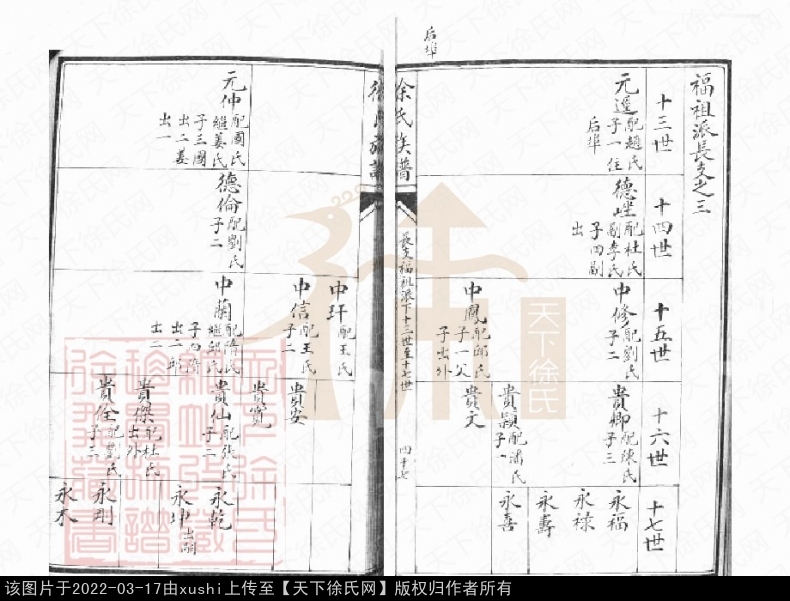 后埠
福祖派長支之三
十三世
十四世
十五世
十六世
十七世
元暹 配趙氏
子一住
后埠
德㘴 配杜氏
副李氏
子四副
出
中修 配劉氏
子二
貴卿 配張氏
子三
永福
永禄
永壽
貴顯 配潘氏
子一
永喜
中鳳 配邱氏
子一父
子出外
貴文
徐氏族譜
長支福祖派下十三世至十七世
四十七
中玕 配王氏
中信 配王氏
子二
貴安
貴寬
元仲 配國氏
繼姜氏
子三國
出二姜
出一
德倫 配劉氏
子二
中蘭 配隋氏
繼邱氏
子四隋
出二邱
出二
貴仙 配張氏
子二
永乾
永坤 出嗣
貴傑 配杜氏
出外
貴全 配劉氏
子三
永剛
永木
天下徐氏
该图片于2022-03-17由xushi上传至【天下徐氏网】版权归作者所有